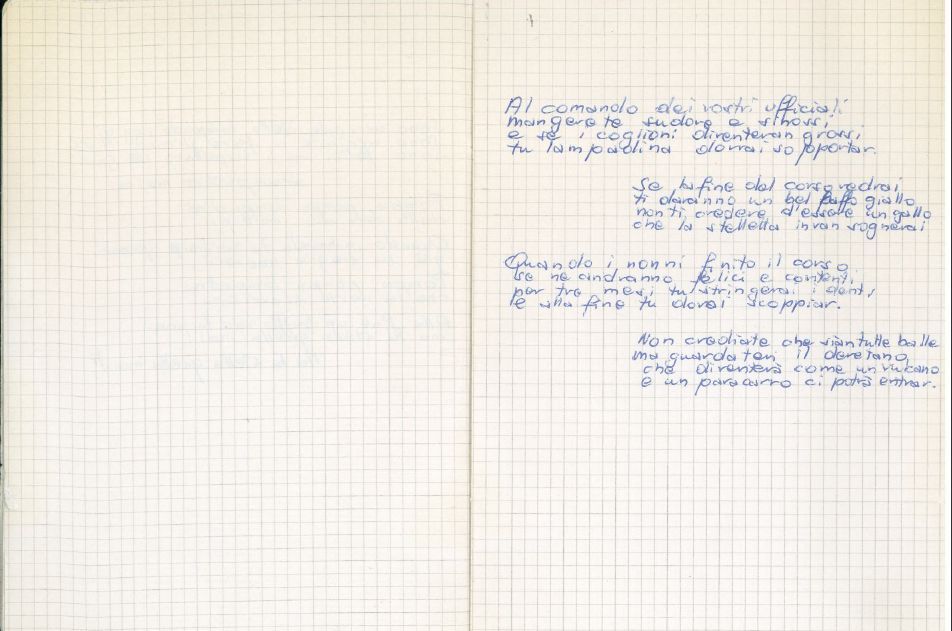 Al comando dei vostri ufficiali
mangerete sudore e
e se i coglioni diventeran grossi
tu lampadina dovrai sopportar.
Se la fine del corso vedrai
ti daranno un bel baffo giallo
non ti credere d'essere un gallo
che la stelletta invan sognerai
Quando i nonni finito il corso
se ne andranno felici e contenti,
per tre mesi tu stringerai i denti
e alla fine tu dovrai scoppiar.
Non crediate che sian tutte balle
ma guardatevi il deretano,
che diventerà come un vulcano
e un paracarro ci potrà entrar.